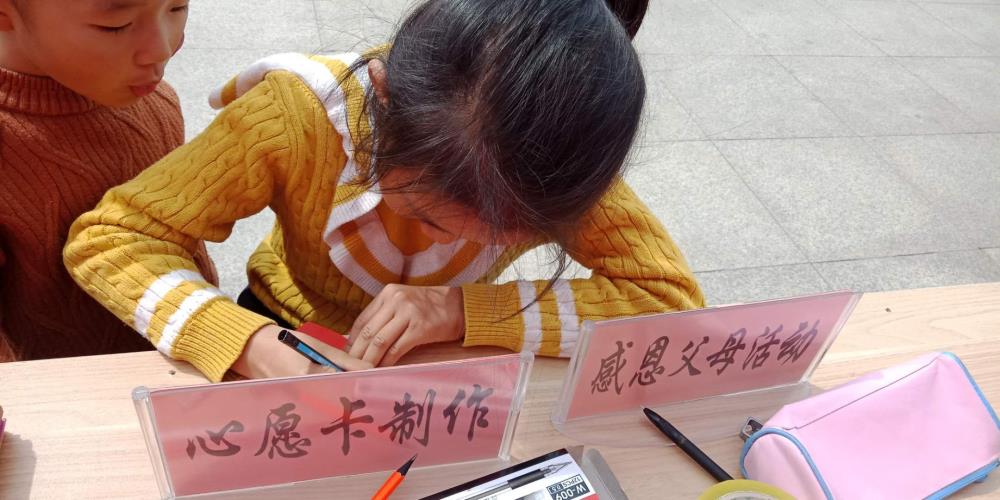 感恩父母活动
心愿卡制作
W-009